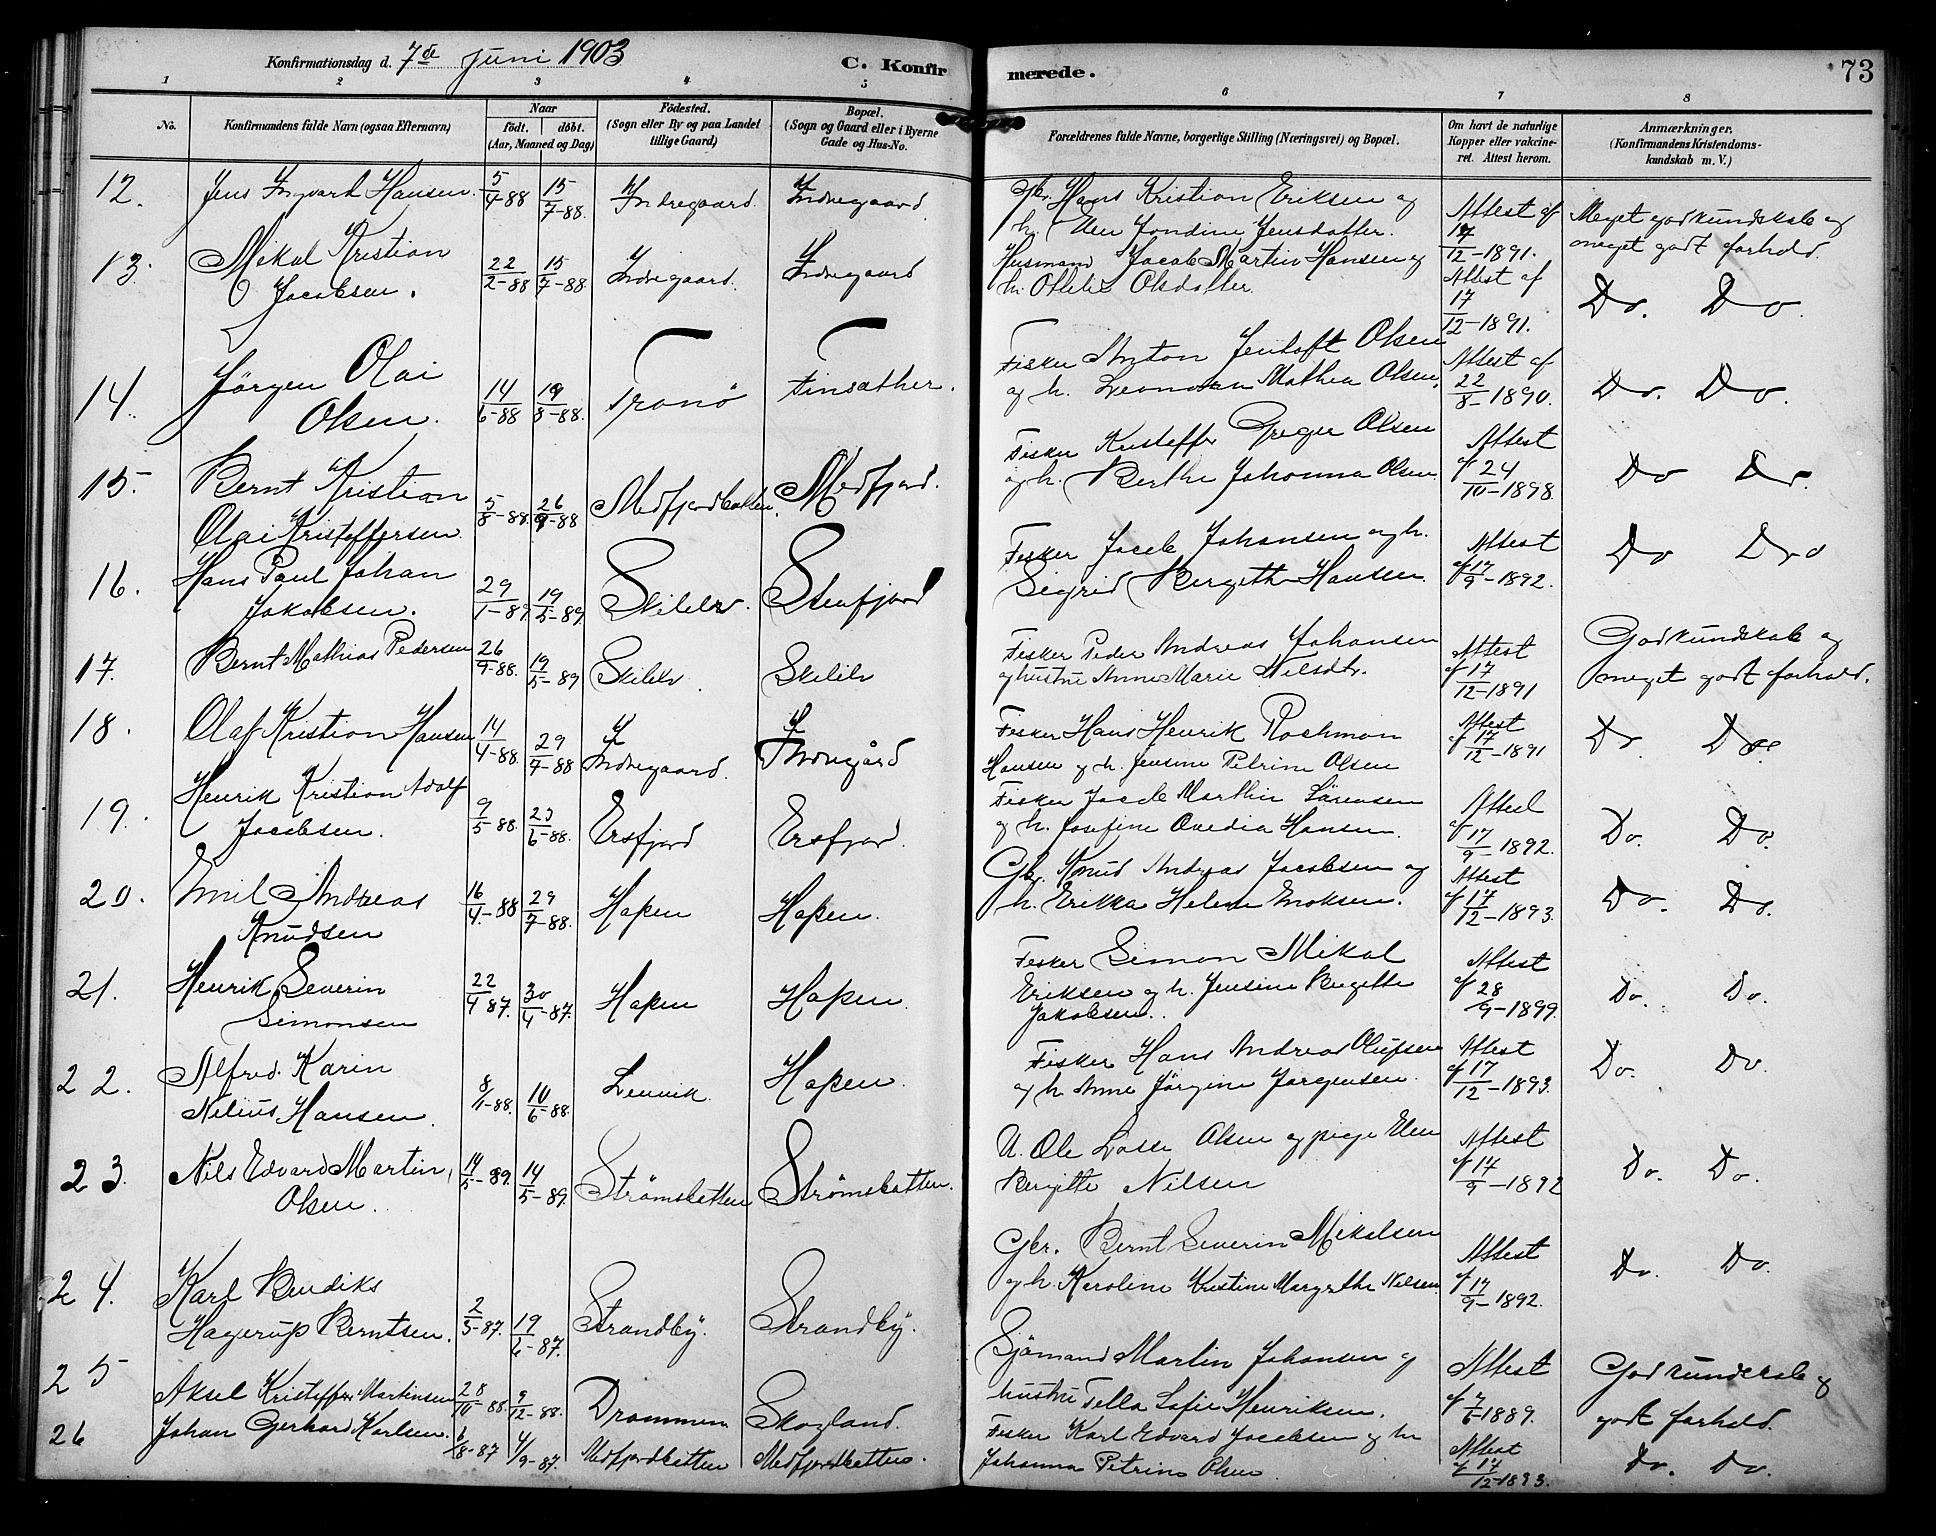 Konfirmationsdag d. 7de Juni 1903
C. Konfirmerede.
73
1 2 3 4 5 6 7 8
No.
Konfirmandens fulde Navn (ogsaa Efternavn)
Naar
födt. döbt.
(Aar, Maaned og Dag)
Födested.
(Sogn eller By og paa Landet
tillige Gaard)
Bopæl.
(Sogn og Gaard eller i Byerne
Gade og Hus-No.
Forældrenes fulde Navne, borgerlige Stilling (Næringsvei) og Bopæl.
Om havt de naturlige
Kopper eller vakcine-
ret. Attest herom.
Anmærkninger.
(Konfirmandens Kristendoms-
kundskab m. V.)
12. Jens Ingvard Hansen. 5/4-88 15/7-88. Indregaard. Indregaard.
Gbr. Hans Kristian Eriksen og
h. Elen Jondine Jensdatter.
Attest af
17/12-1891.
Meget god kundskab og
meget godt forhold.
13. Mikal Kristian
Jacobsen. 22/2-88 15/7-88 Indregaard. Indregaard
Husmand Jacob Martin Hansen og
h. Olsdatter.
Attest af
17/12-1891.
Do. Do.
14. Jörgen Olai
Olsen. 14/6-88 19/8-88. Tranö Finsæther.
Fisker Anton Jentoft Olsen
og h. Mathea Olsen.
Attest af
22/8-1890.
Do. Do.
15. Bernt Kristian
Olai Kristoffersen 5/8-88. 26/9-88 Medfjordbotten. Medfjord.
Fisker Kristoffer Greger Olsen
og h. Berthe Johanna Olsen
Attest
af 24/10-1898.
Do Do.
16. Hans Paul Johan
Jakobsen. 29/1-89 19/5-89 Skilelv. Stenfjord
Fisker Jacob Johansen og h.
Sigrid Bergethe Hansen.
Attest
af 17/9-1892.
Do Do
17. Bernt Mathias Pedersen 26/9-88. 19/5-89 Skilelv. Skilelv
Fisker Peder Andreas Johansen
og hustru Anne Marie Nilsdtr.
Attest
af 17/12-1891
God kundskab og
meget godt forhold.
18. Olaf Kristian Hansen 14/4-88. 29/7-88 Indregaard. Indregård
Fisker Hans Henrik
Hansen og h. Jensine Petrine Olsen
Attest
af 17/12-1891
Do Do
19. Henrik Kristian Adolf
Jacobsen. 9/5-88. 23/6-88. Ersfjord Ersfjord.
Fisker Jacob Marthin Sörensen
og h. Josefine Ovedia Hansen.
Attest
af 17/9-1892.
Do. Do.
20. Emil Andreas
Knudsen 16/4-88 29/7-88. Hapen Hapen.
Gbr. Knud Andreas Jacobsen og
h. Erikka Helene Enoksen.
Attest
af 17/12-1893.
Do. Do.
21. Henrik Severin
Simonsen 22/4 87. 30/4-87. Hapen Hapen.
Fisker Simon Mikal
Eriksen og h. Jensine Bergitte
Jakobsen.
Attest
af 28/9-1899.
Do. Do.
22. Alfred Karin
Nelius Hansen. 8/1-88. 10/6-88. Lenvik. Hapen.
Fisker Hans Andreas Olufsen
og h. Anne Jörgine Jørgensen.
Attest
af 17/12-1893.
Do. Do.
23. Nils Edvard Martin
Olsen. 14/5-89. 14/5-89. Strømsbotten Strømsbotten.
U. Ole Lasse Olsen og pige Elen
Bergitte Nilsen
Attest
af 17/9-1892
Do. Do.
24. Karl Bendiks
Hagerup Berntsen. 2/5-87. 19/6-87. Strandby. Strandby.
Gbr. Bernt Severin Mikalsen
og h. Karoline Kristine Margrethe Nilsen
Attest
af 17/9-1892.
Do. Do.
25 Aksel Kristoffer Martinsen 28/10-88. 9/12-88. Drammen Skogland.
Sjömand Martin Johansen og
hustru Tella Sofie Henriksen.
Attest
af 7/6-1889.
God kundskab og
godt forhold.
26 Johan Gerhard Karlsen. 6/8-87 4/9-87. Medfjordbotten Medfjordbotten.
Fisker Karl Edvard Jacobsen og h.
Johanna Petrine Olsen.
Attest
af 17/12-1893.
Do. Do.